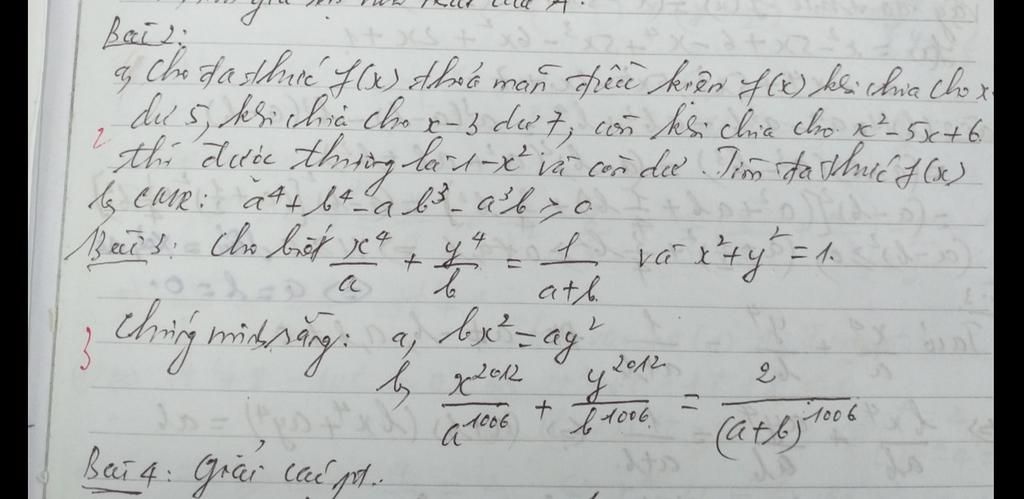 Bài 2:
a, Cho đa thức f(x) thoả mãn điều kiện f(x) khi chia cho x
dư 5, khi chia cho x-3 dư 7, còn khi chia cho x²-5x+6
2 thì được thương là 1-x² và còn dư. Tìm đa thức f(x)
b, CMR: a⁴+b⁴-ab³-a³b ≥ 0
Bài 3: Cho biết x⁴/a + y⁴/b = 1/(a+b) và x²+y²=1.
3 Chứng minh rằng: a, bx²=ay²
b, x²⁰¹²/a¹⁰⁰⁶ + y²⁰¹²/b¹⁰⁰⁶ = 2/(a+b)¹⁰⁰⁶
Bài 4: Giải các pt.